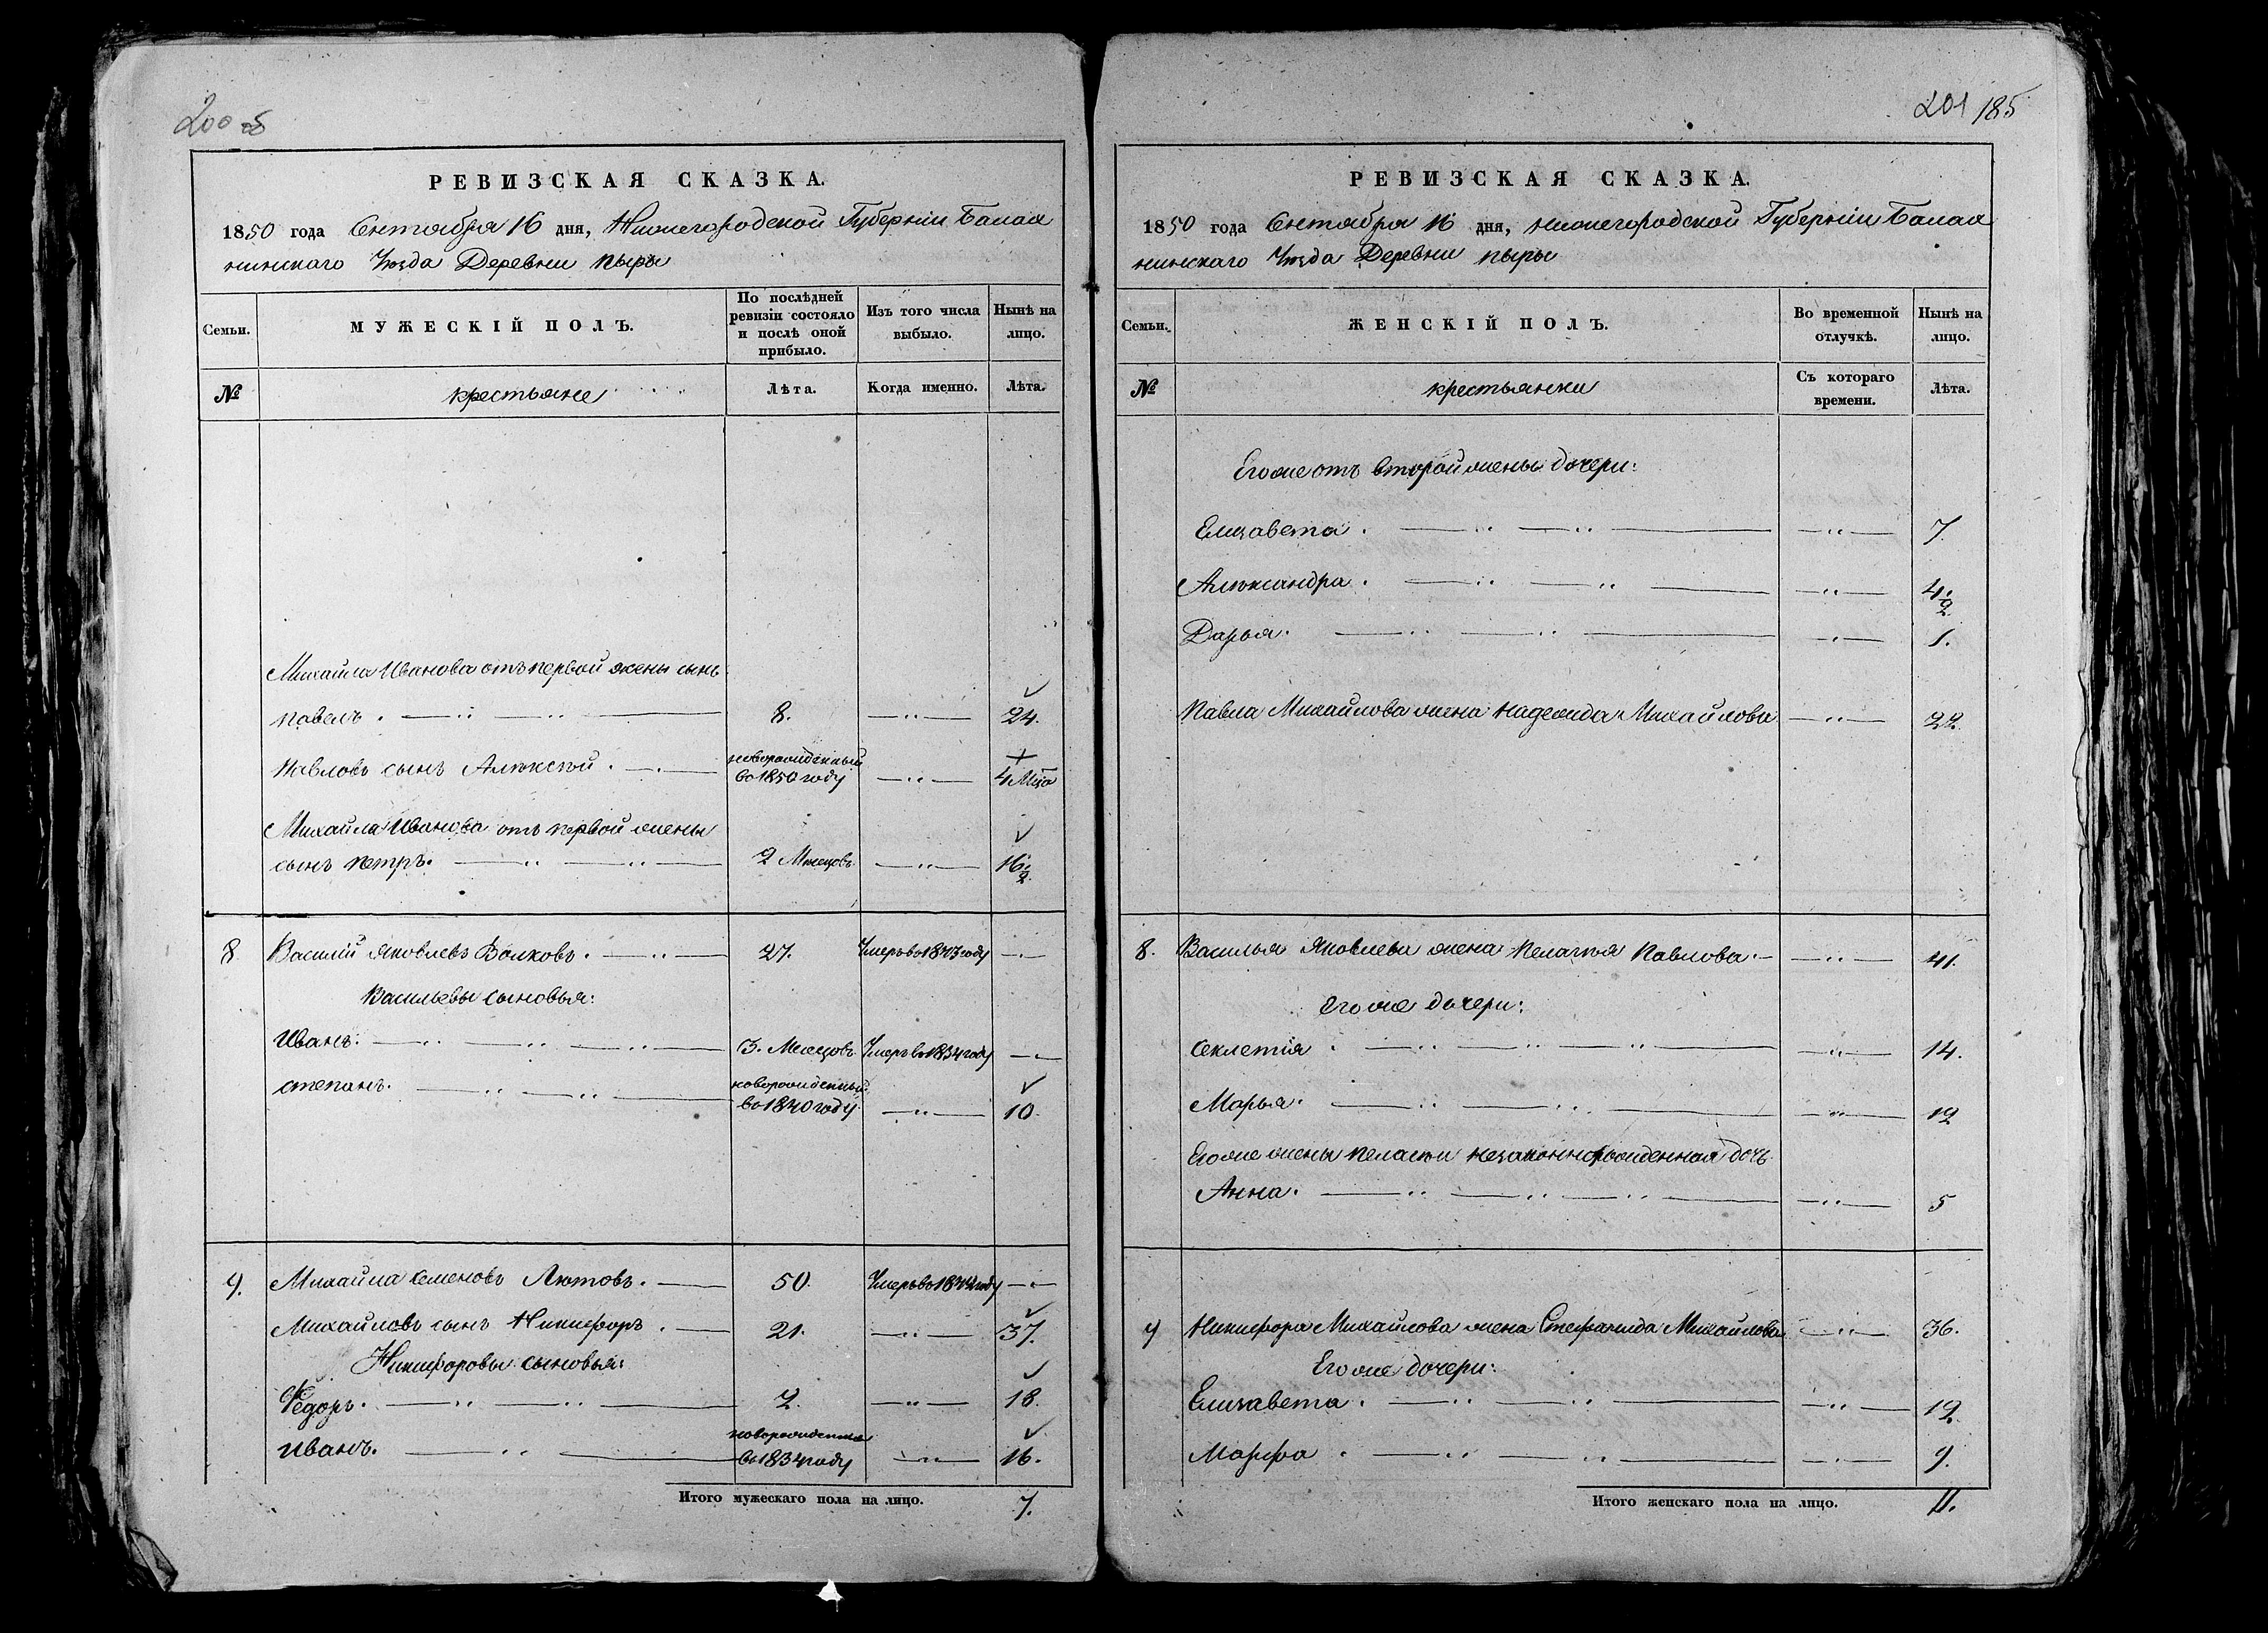 200 об
РЕВИЗСКАЯ СКАЗКА.
1850 года Сентября 16 дня, Нижегородской Губерніи Балах
нинскаго Уѣзда Деревни пыры
Семьи. МУЖЕСКІЙ ПОЛЪ. По послѣдней ревизіи состояло и послѣ оной прибыло. Изъ того числа выбыло. Нынѣ на лицо.
№ крестьяне Лѣта. Когда именно. Лѣта.
Михайла Иванова отъ первой жены сынъ
павелъ. 8. 24.
павловъ сынъ Алѣксѣй. новорожденный во 1850 году 4 Мѣца
Михайла Иванова отъ первой жены
сынъ петръ. 2 Мѣсецовъ 16 1/2
8 Василій Яковлевъ Волковъ. 27. Умеръ во 1843 году
Васильевы сыновья:
Иванъ. 3. Месецовъ Умеръ во 1834 году
степанъ. новорожденный во 1840 году. 10.
9. Михайла семеновъ Лютовъ. 50. Умеръ во 1842 году
Михайловъ сынъ Никифоръ. 21. 37.
Никифоровы сыновья:
Федоръ. 2. 18.
Иванъ. новорожденный во 1834 году 16.
Итого мужескаго пола на лицо. 7.
201 185
РЕВИЗСКАЯ СКАЗКА.
1850 года Сентября 16 дня, нижегородской Губерніи Балах
нинскаго Уѣзда Деревни пыры
Семьи. ЖЕНСКІЙ ПОЛЪ. Во временной отлучкѣ. Нынѣ на лицо.
№ крестьянки Съ котораго времени. Лѣта.
Егоже отъ второй жены дочери:
Елизавета. 7.
Алѣксандра. 4 1/2
Дарья. 1.
Павла Михайлова жена надежда Михайлова 22.
8. Василья Яковлева жена пелагѣя павлова. 41.
Егоже дочери:
секлетія. 14.
Марья. 12
Егоже жены пелагѣи незаконнорожденная дочь
Анна. 5
9 Никифора Михайлова жена Стефанида Михайлова 36.
Егоже дочери:
Елизавета. 12.
Марфа. 9.
Итого женскаго пола на лицо. 11.